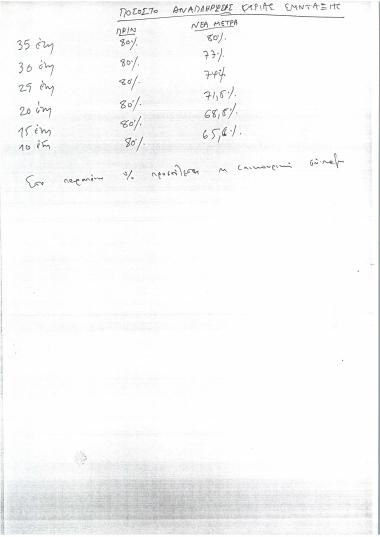 ΠΟΣΟΣΤΟ ΑΝΑΠΛΗΡΩΣΗΣ ΚΥΡΙΑΣ ΣΥΝΤΑΞΗΣ
ΠΡΙΝ ΝΕΑ ΜΕΤΡΑ
35 έτη 80% 80%
30 έτη 80% 77%
25 έτη 80% 74%
20 έτη 80% 71,5%
15 έτη 80% 68,5%
10 έτη 80% 65,6%
Στο παραπάνω % προστίθεται η